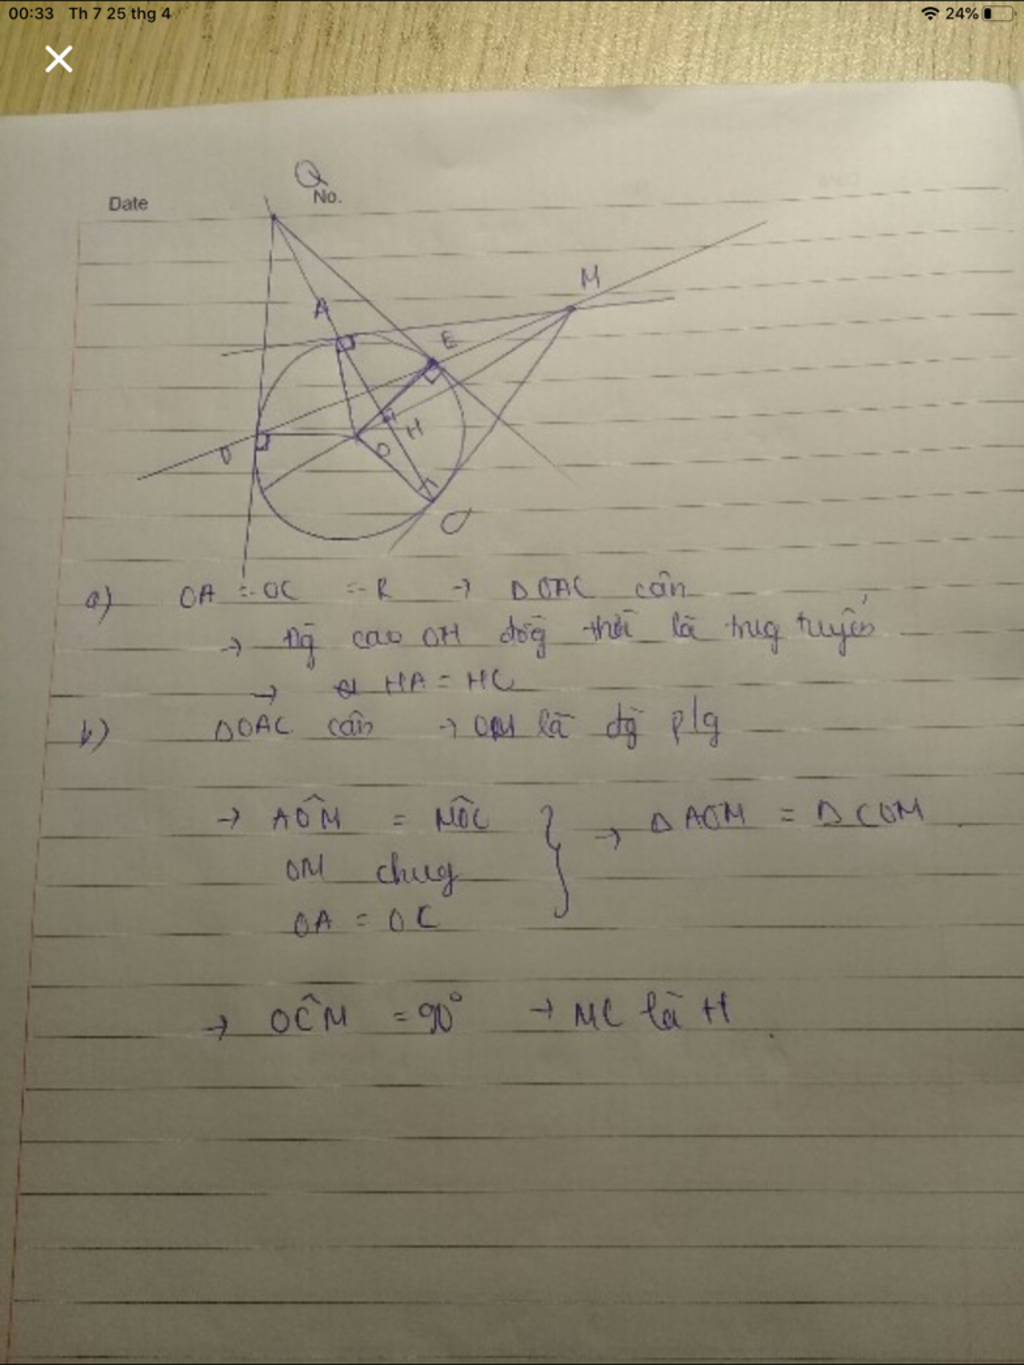 00:33 Th 7 25 thg 4 24%
Q
Date No.
M
A
E
H
D O
C
a) OA = OC = R → ΔOAC cân
→ đg cao OH đồg thời là trug tuyến
→ HA = HC
b) ΔOAC cân → OM là đg p/g
→ AÔM = MÔC } → ΔAOM = ΔCOM
OM chug
OA = OC
→ OĈM = 90° → MC là tt